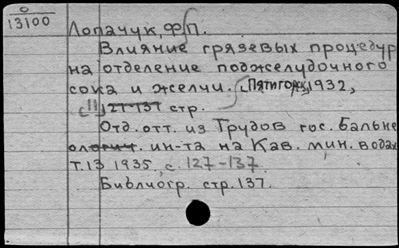 О
13100
Лопачук, Ф.П.
Влияние грязевых процедур
на отделение поджелудочного
сока и желчи. Пятигорск, 1932,
с. 11 127-137 стр.
Отд. отт. из Трудов гос. Бальне
ологич. ин-та на Кав. мин. водах
т. 13 1935, с. 127-137.
Библиогр. стр. 137.